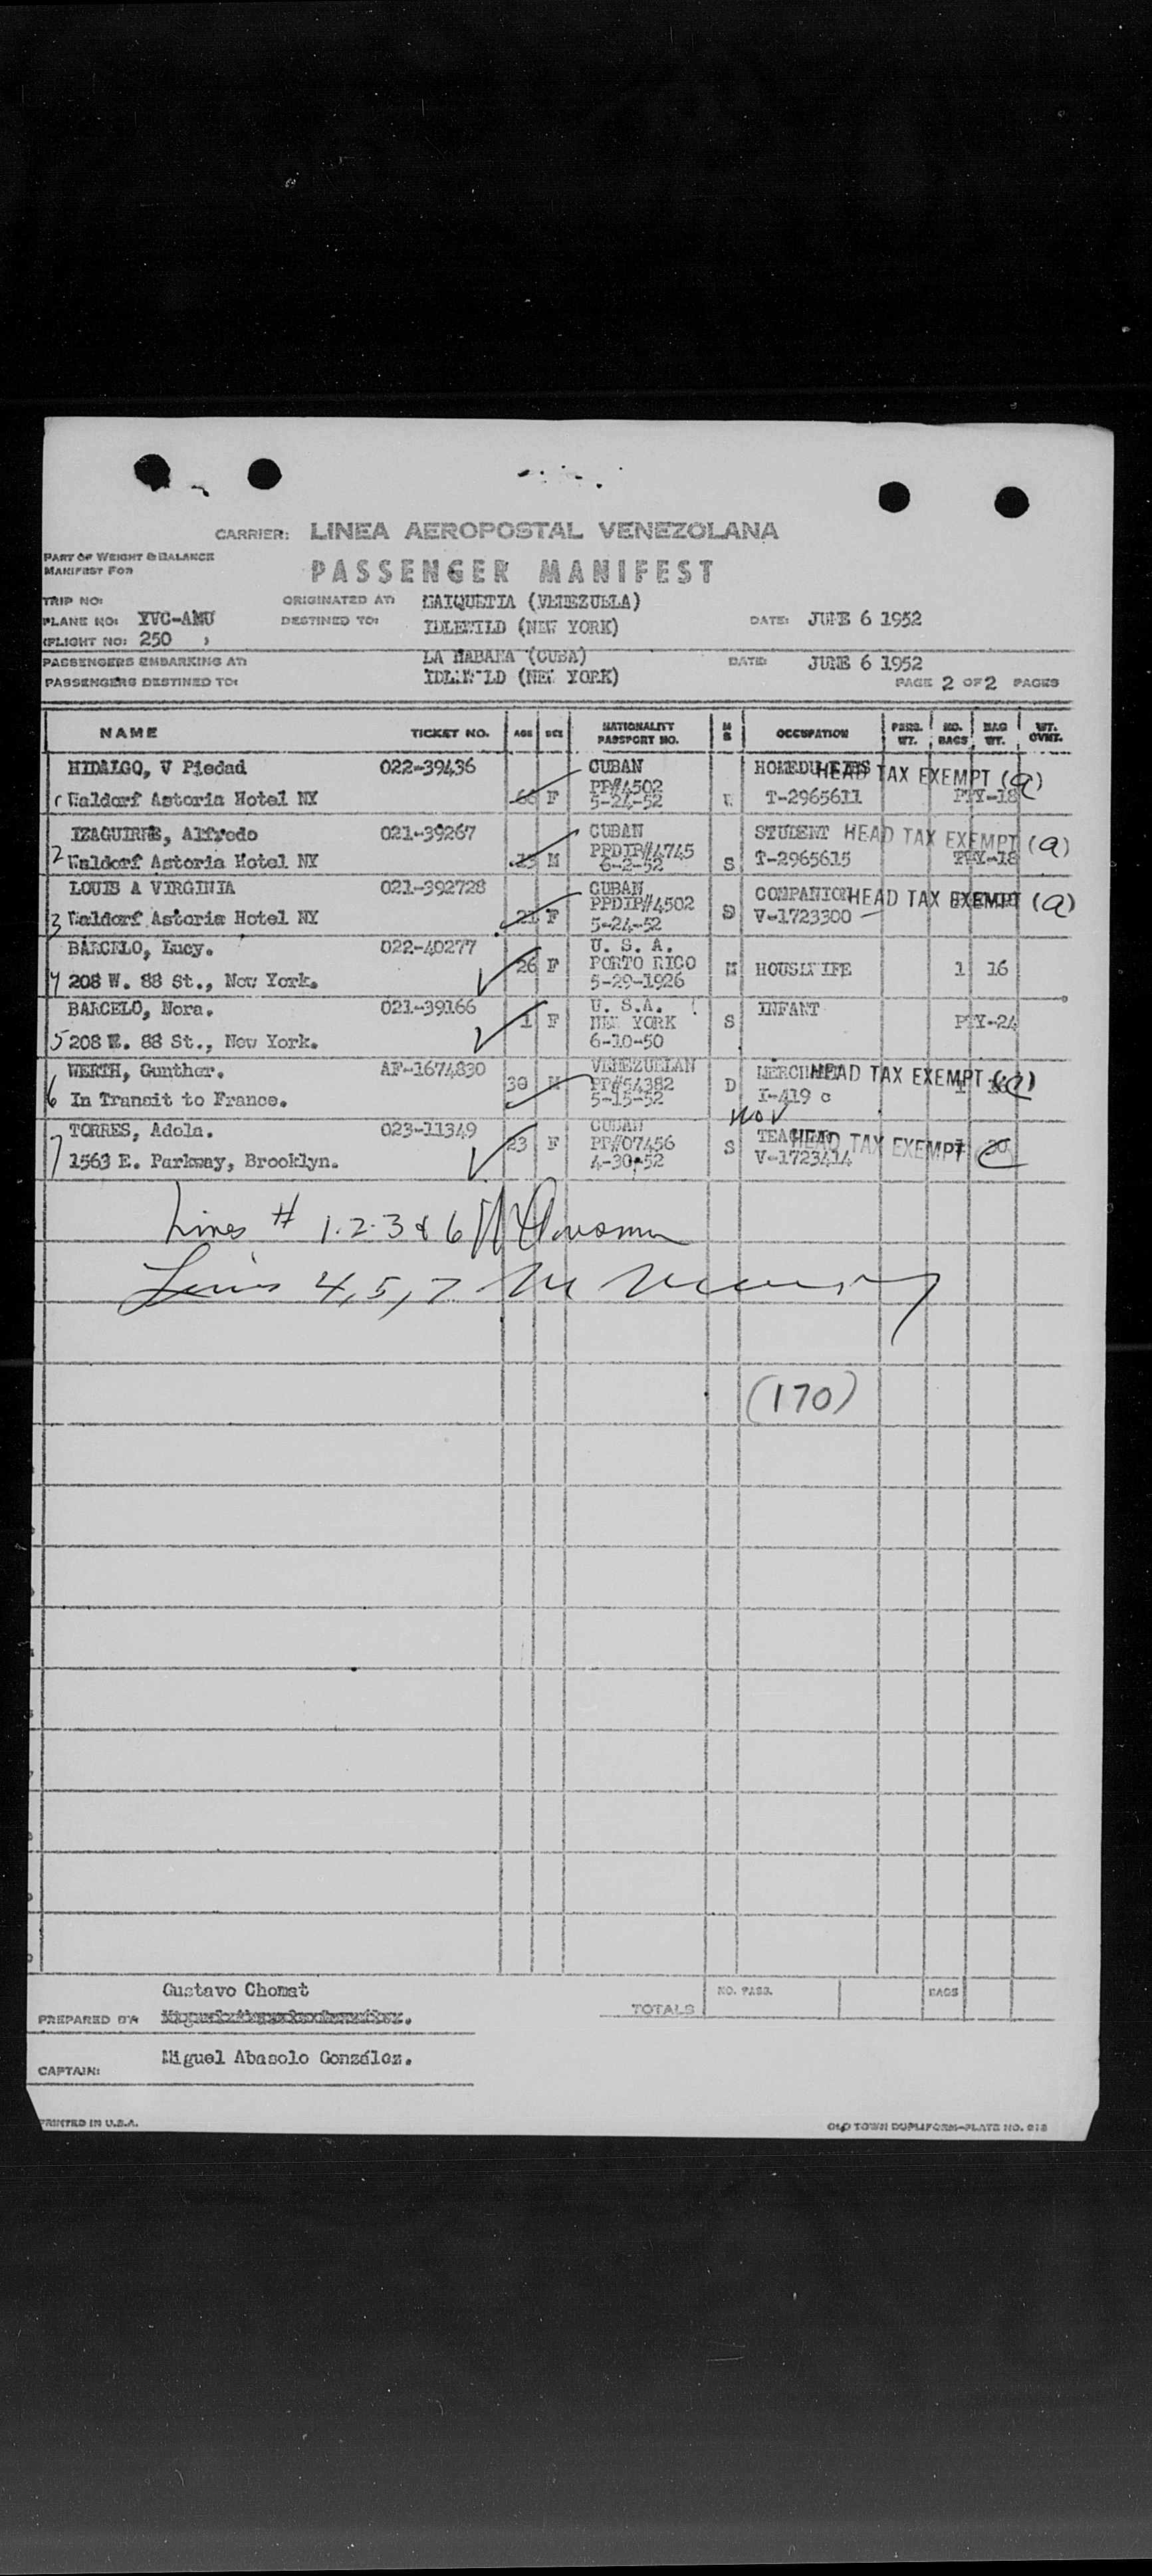 CARRIER: LINEA AEROPOSTAL VENEZOLANA
PART OF WEIGHT & BALANCE
MANIFEST FOR
PASSENGER MANIFEST
TRIP NO:
ORIGINATED AT: MAIQUETIA (VENEZUELA)
PLANE NO: YVC-AMU
DESTINED TO: IDLEWILD (NEW YORK)
DATE: JUNE 6 1952
(FLIGHT NO: 250 )
PASSENGERS EMBARKING AT: LA HABANA (CUBA)
DATE: JUNE 6 1952
PASSENGERS DESTINED TO: IDLEWILD (NEW YORK)
PAGE 2 OF 2 PAGES
NAME TICKET NO. AGE SEX NATIONALITY PASSPORT NO. M S OCCUPATION PASS. WT. NO. BAGS BAG WT. WT. CVNT.
HIDALGO, V Piedad 022-39436 CUBAN HEAD TAX EXEMPT (a)
PP#4502
1 Waldorf Astoria Hotel NY F 5-24-52 T-2965611 PTY-18
IZAGUIRRE, Alfredo 021-39267 CUBAN STUDENT HEAD TAX EXEMPT (a)
PPDIP#4745
2 Waldorf Astoria Hotel NY M 6-2-52 S T-2965615 PTY-18
LOUIS A VIRGINIA 021-392728 CUBAN COMPANION HEAD TAX EXEMPT (a)
PPDIP#4502
3 Waldorf Astoria Hotel NY F 5-24-52 S V-1723300
BARCELO, Lucy. 022-40277 U. S. A.
26 F PORTO RICO M HOUSEWIFE 1 16
4 208 W. 88 St., New York. 5-29-1926
BARCELO, Nora. 021-39166 U. S.A. INFANT
1 F NEW YORK S PTY-24
5 208 W. 88 St., New York. 6-10-50
WERTH, Gunther. AF-1674830 VENEZUELAN HEAD TAX EXEMPT
30 M PP#54382 D
6 In Transit to France. 5-15-52 I-419 c
TORRES, Adela. 023-11349 CUBAN
23 F PP#07456 S TEACHER HEAD TAX EXEMPT
7 1563 E. Parkway, Brooklyn. 4-30-52 V-1723414
Lines # 1.2.3 & 6
Lines 4, 5, 7
(170)
Gustavo Chomat
NO. PASS. BAGS
TOTALS
PREPARED BY:
CAPTAIN: Miguel Abasolo González.
PRINTED IN U.S.A.
OLD TOWN DUPLIFORM-PLATE NO. 818